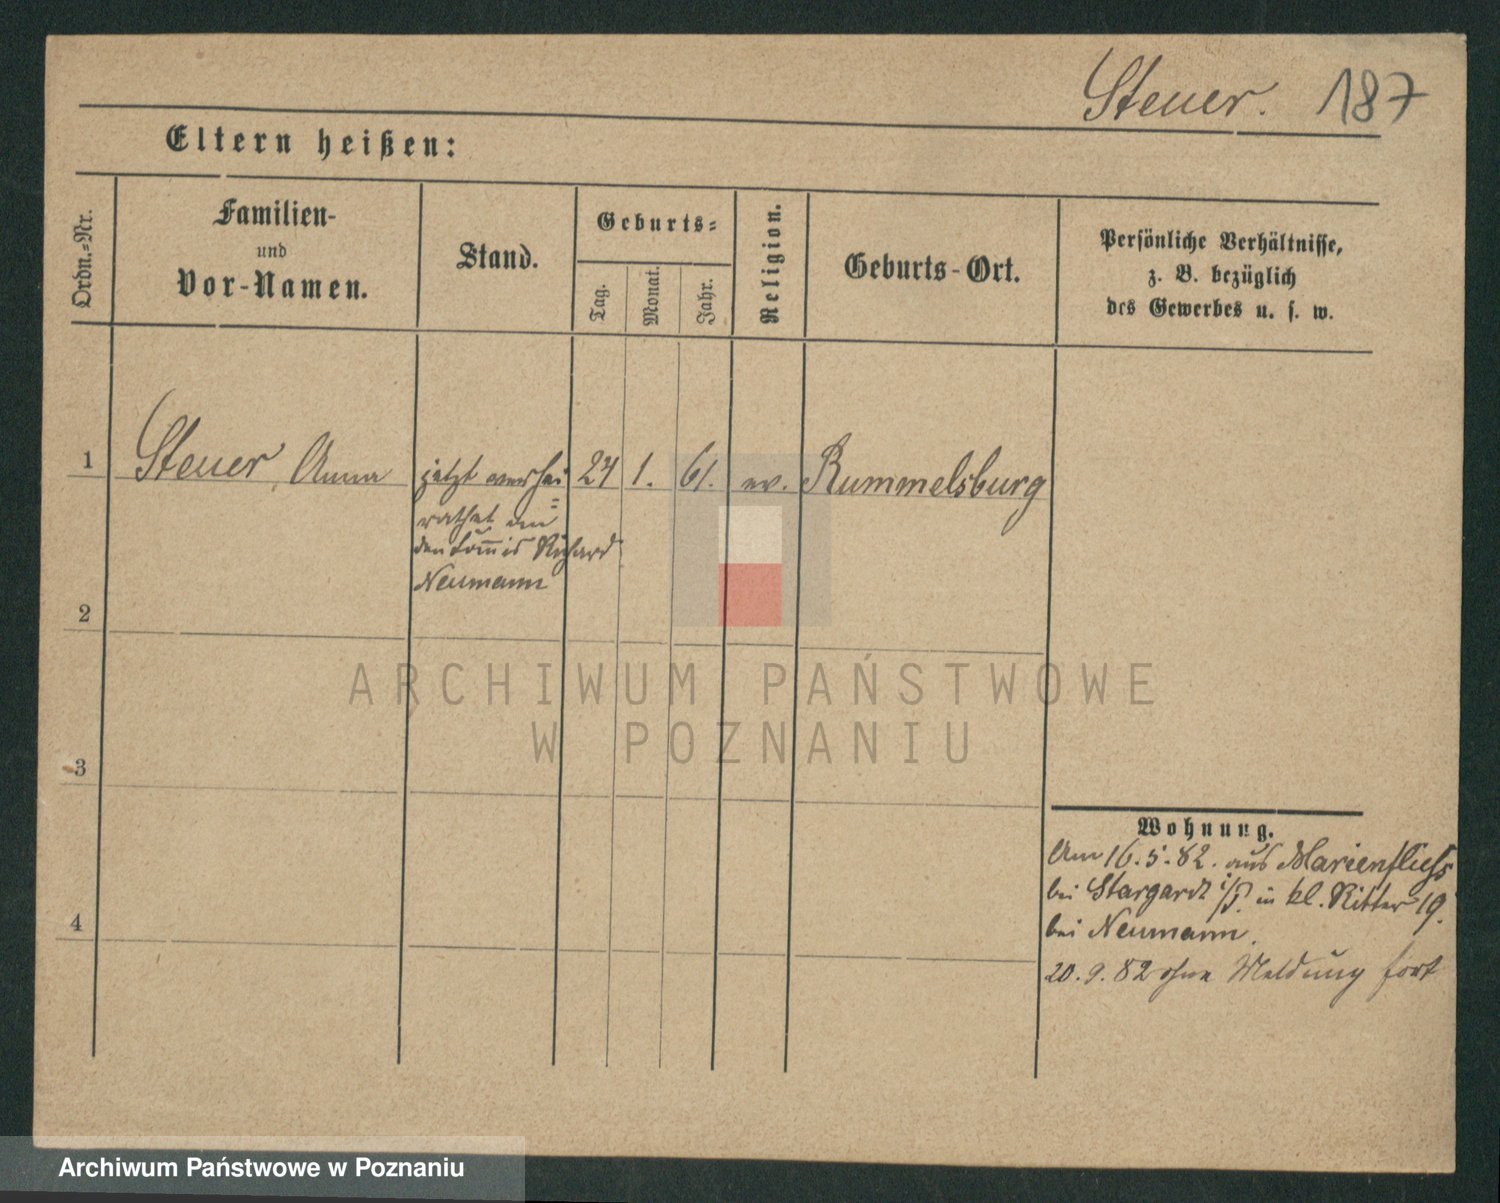 Steuer. 187
Eltern heißen:
Ordn.=Nr.
Familien-
und
Vor-Namen.
Stand.
Geburts=
Tag.
Monat.
Jahr.
Religion.
Geburts-Ort.
Persönliche Verhältnisse,
z. B. bezüglich
des Gewerbes u. s. w.
1 Steuer, Anna jetzt verhei 24 1. 61. ev. Rummelsburg
=rathet an
den Com̅is Richard
Neumann
2
3
4
ARCHIWUM PAŃSTWOWE
W POZNANIU
Wohnung.
Am 16.5.82. aus Marienfließ
bei Stargardt i/P. in kl. Ritter 19.
bei Neumann.
20.9.82 ohne Meldung fort
Archiwum Państwowe w Poznaniu